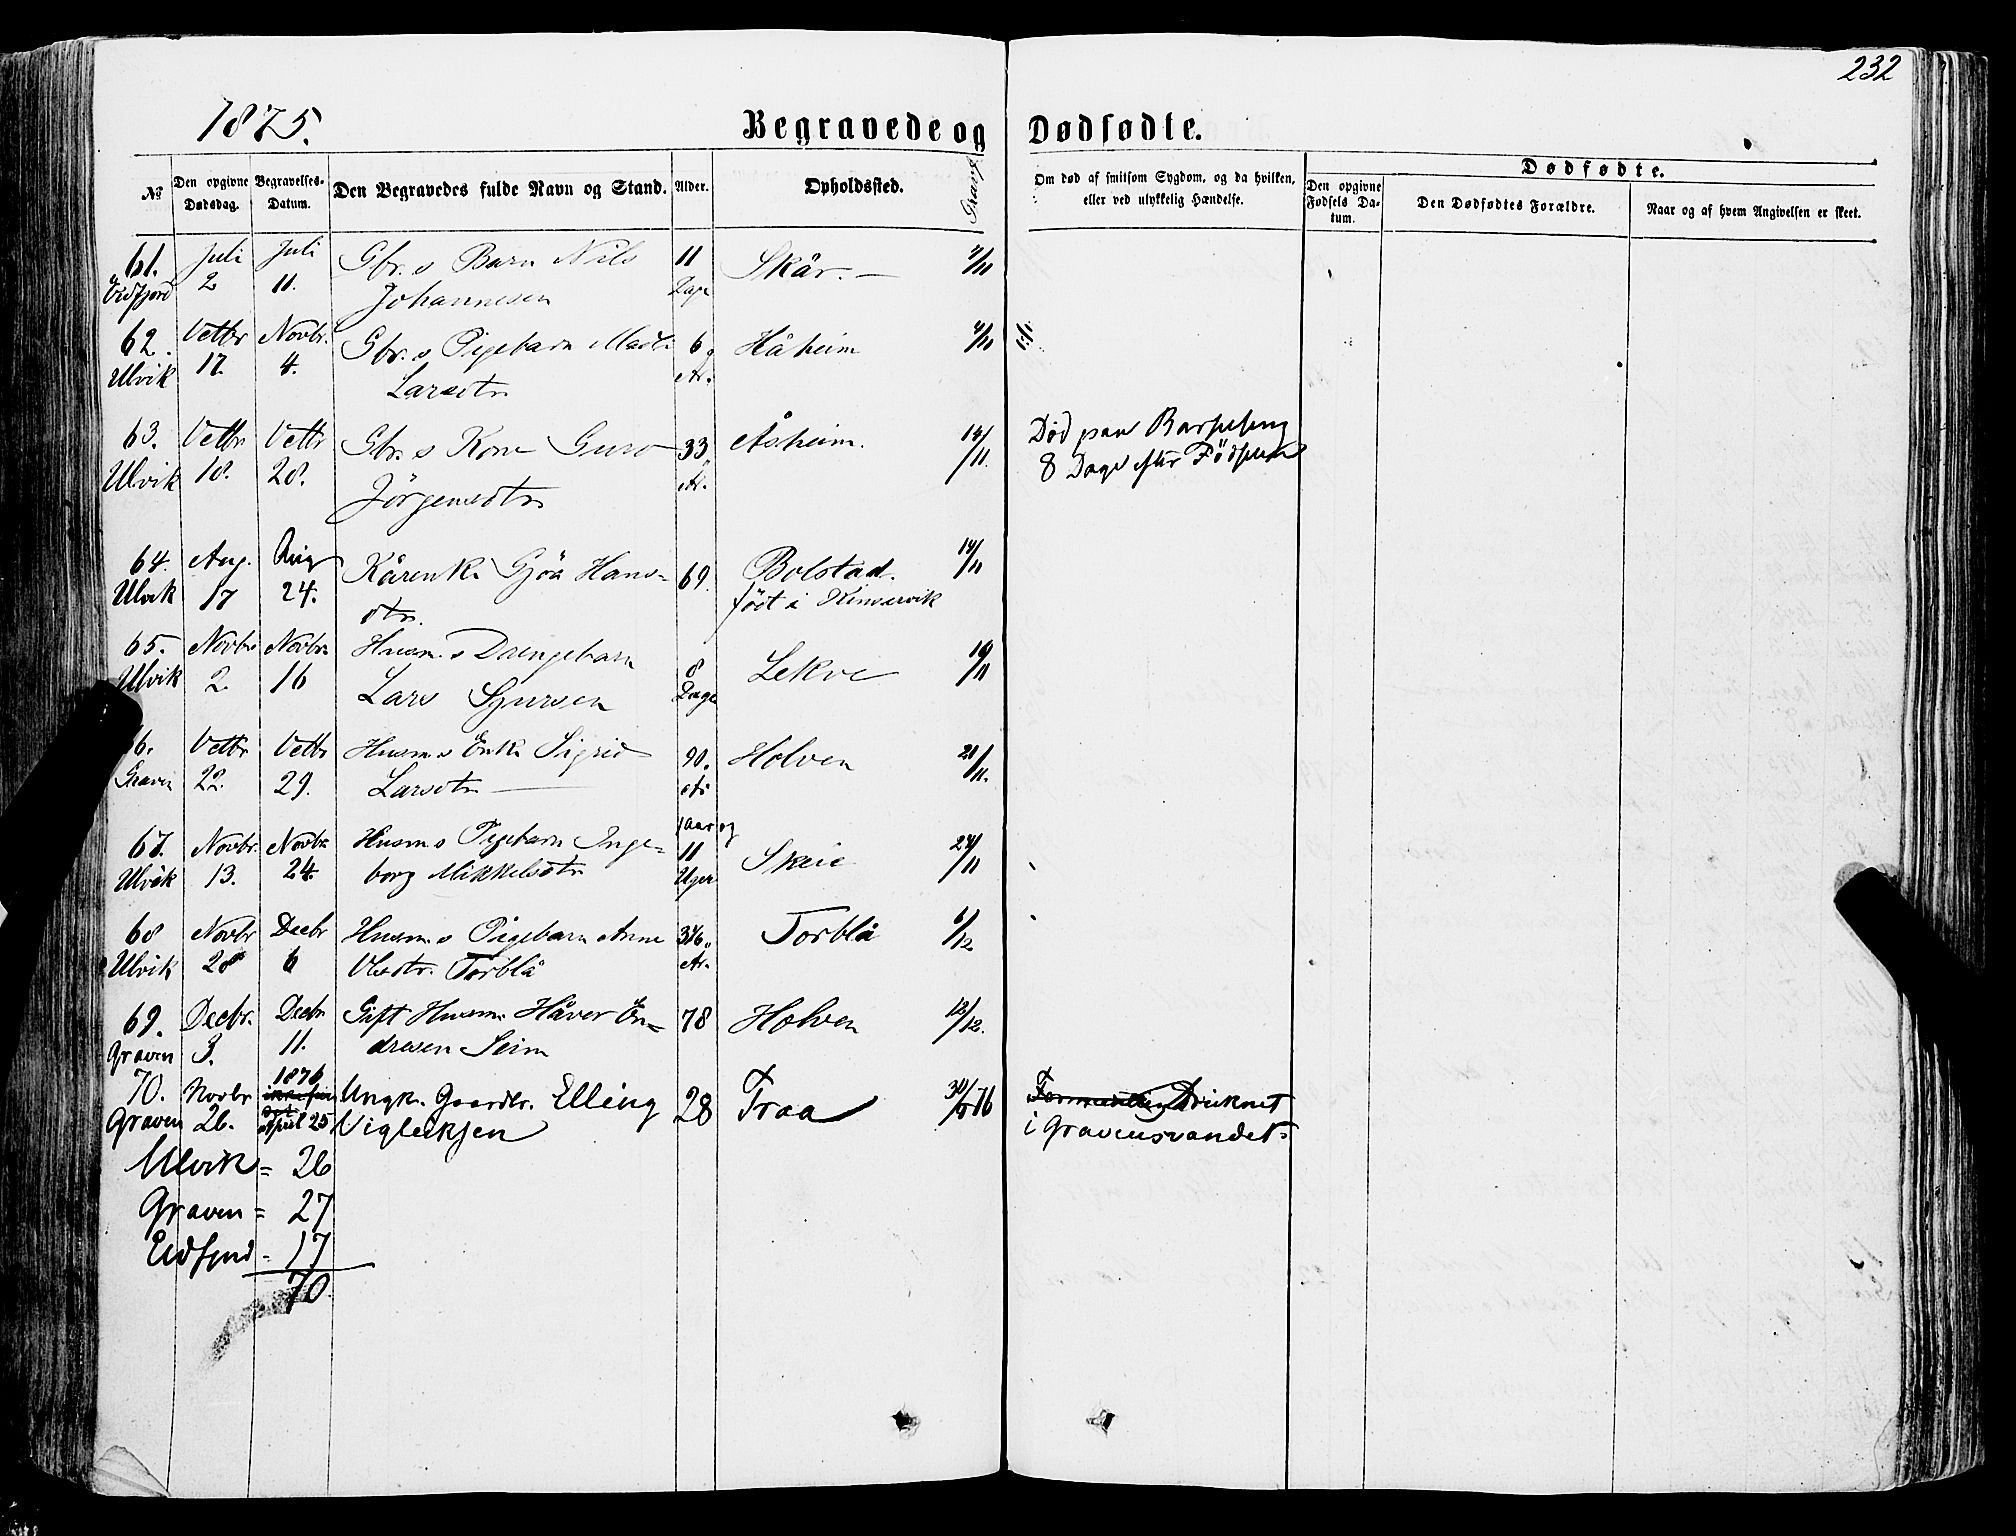 232
1875.
Begravede og Dødfødte.
Nº
Den opgivne Dødsdag.
Begravelses-Datum.
Den Begravedes fulde Navn og Stand.
Alder.
Opholdssted.
Om død af smitsom Sygdom, og da hvilken, eller ved ulykkelig Hændelse.
Dødfødte.
Den opgivne Fødsels Da-tum.
Den Dødfødtes Forældre.
Naar og af hvem Angivelsen er skeet.
61. Juli Juli Gbr.s Barn Nils 11 Skår. —
Eidfjord 2 11. Johannesen Dage
62. Novbr. Gbr.s Pigebarn 6 Håheim 4/11
Ulvik 17. 4. Larsdtr. Ar.
63. Gbr.s Kone Guro 33 Åsheim. 14/11. Död paa Barselseng
Ulvik 18. 28. Jörgensdtr. Ar. 8 Dage efter Födselen
64. Aug. Aug Kårenk. Gjöa Hans= 69. Bolstad. 14/11
Ulvik 17 24. dtr. födt i Kinservik
65. Novbr Novbr Husm.s Drengebarn 8 Lekve
Ulvik 2. 16 Lars Sjursen Dage
66. Husm.s Enke Sigrid 90. Holven
Graven 22. 29. Larsdtr. — Ar
67. Novbr. Novbr Husm.s Pigebarn Inge= 1 Aar og 11 Skeie 24/11
Ulvik 13. 24. borg Mikkelsdtr. Uger
68 Novbr Decbr Husm.s Pigebarn Anne Torblå 6/12.
Ulvik 28 6 Olsdtr. Torblå Ar.
69. Decbr. Decbr Gift Husm. Håver En= 78 Holven 12/12.
Graven 3. 11. dresen Seim
70. Novbr 1876 Ungk. Gaardbr. Elling 28 Traa Druknet
Graven 26. April 25 Vigleiksen i Gravensvandet.
Ulvik = 26
Graven = 27
Eidfjord = 17
70.